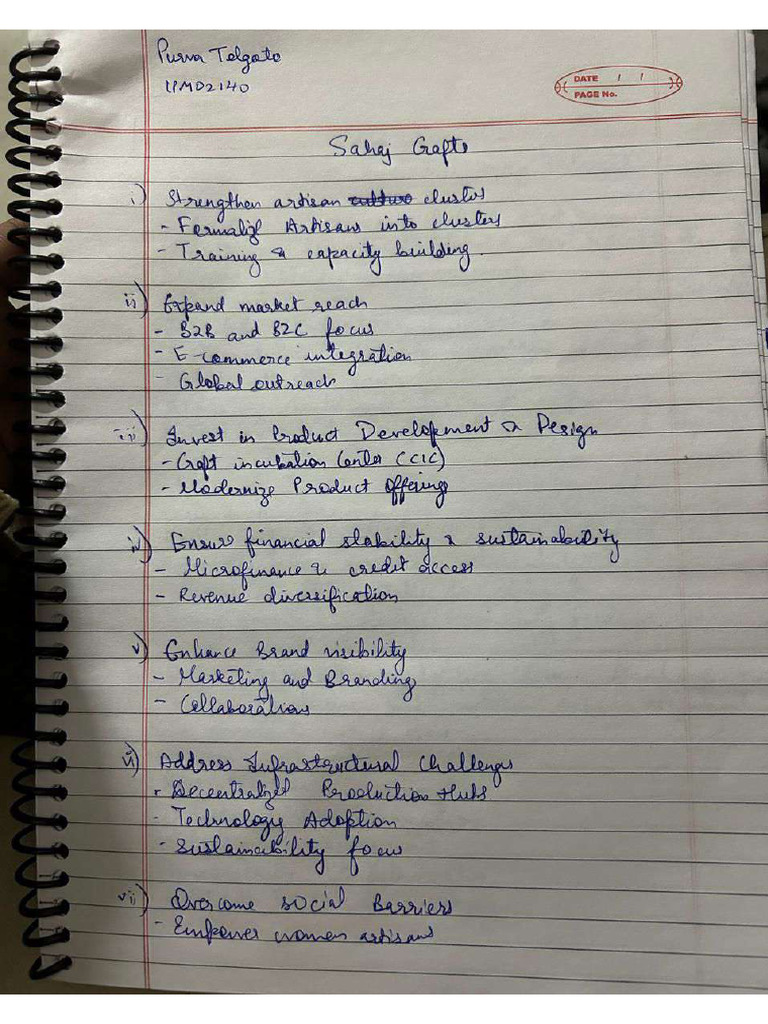 Purva Telgote
UMD2140
DATE / /
PAGE No.
Sahaj Crafts
i) Strengthen artisan culture clusters
- Formalize Artisans into clusters
- Training & capacity building.
ii) Expand market reach
- B2B and B2C focus
- E-commerce integration
- Global outreach
iii) Invest in Product Development & Design
- Craft incubation Center (CIC)
- Modernize Product offering
iv) Ensure financial stability & sustainability
- Microfinance & credit access
- Revenue diversification
v) Enhance Brand visibility
- Marketing and Branding
- Collaborations
vi) Address Infrastructural Challenges
- Decentralized Production Hubs
- Technology Adoption
- Sustainability focus
vii) Overcome social Barriers
- Empower women artisans